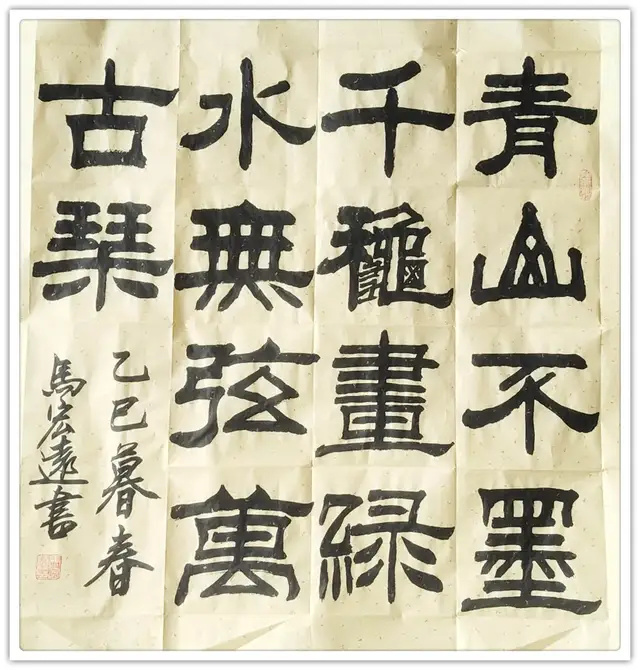 青山不墨
千龝畫緑
水無弦萬
古琹
乙巳暮春
馬宏遠書